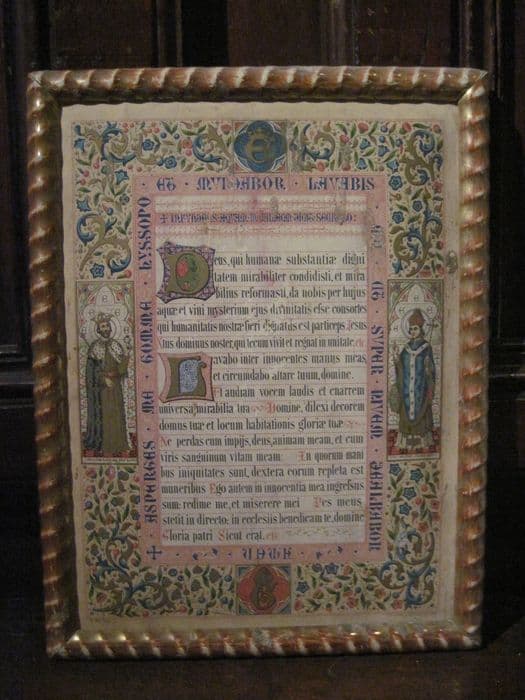 ASPERGES · ME · DOMINE · HYSSOPO
ET · MUNDABOR · LAVABIS
ME · ET · SUPER · NIVEM · DEALBABOR
Deus, qui humanæ substantiæ digni
tatem mirabiliter condidisti, et mira
bilius reformasti, da nobis per hujus
aquæ et vini mysterium ejus divinitatis esse consortes
qui humanitatis nostræ fieri dignatus est particeps, Jesus
tus dominus noster, qui tecum vivit et regnat in unitate
Lavabo inter innocentes manus meas
et circumdabo altare tuum, domine.
Ut audiam vocem laudis et enarrem
universa mirabilia tua Domine, dilexi decorem
domus tuæ et locum habitationis gloriæ tuæ
Ne perdas cum impijs, deus, animam meam, et cum
viris sanguinum vitam meam. In quorum mani
bus iniquitates sunt, dextera eorum repleta est
muneribus Ego autem in innocentia mea ingressus
sum: redime me, et miserere mei Pes meus
stetit in directo: in ecclesiis benedicam te, domine
Gloria patri Sicut erat.